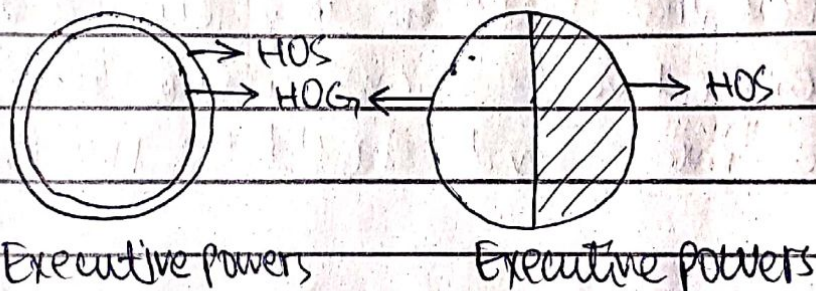 HOS
HOG HOS
Executive powers Executive powers